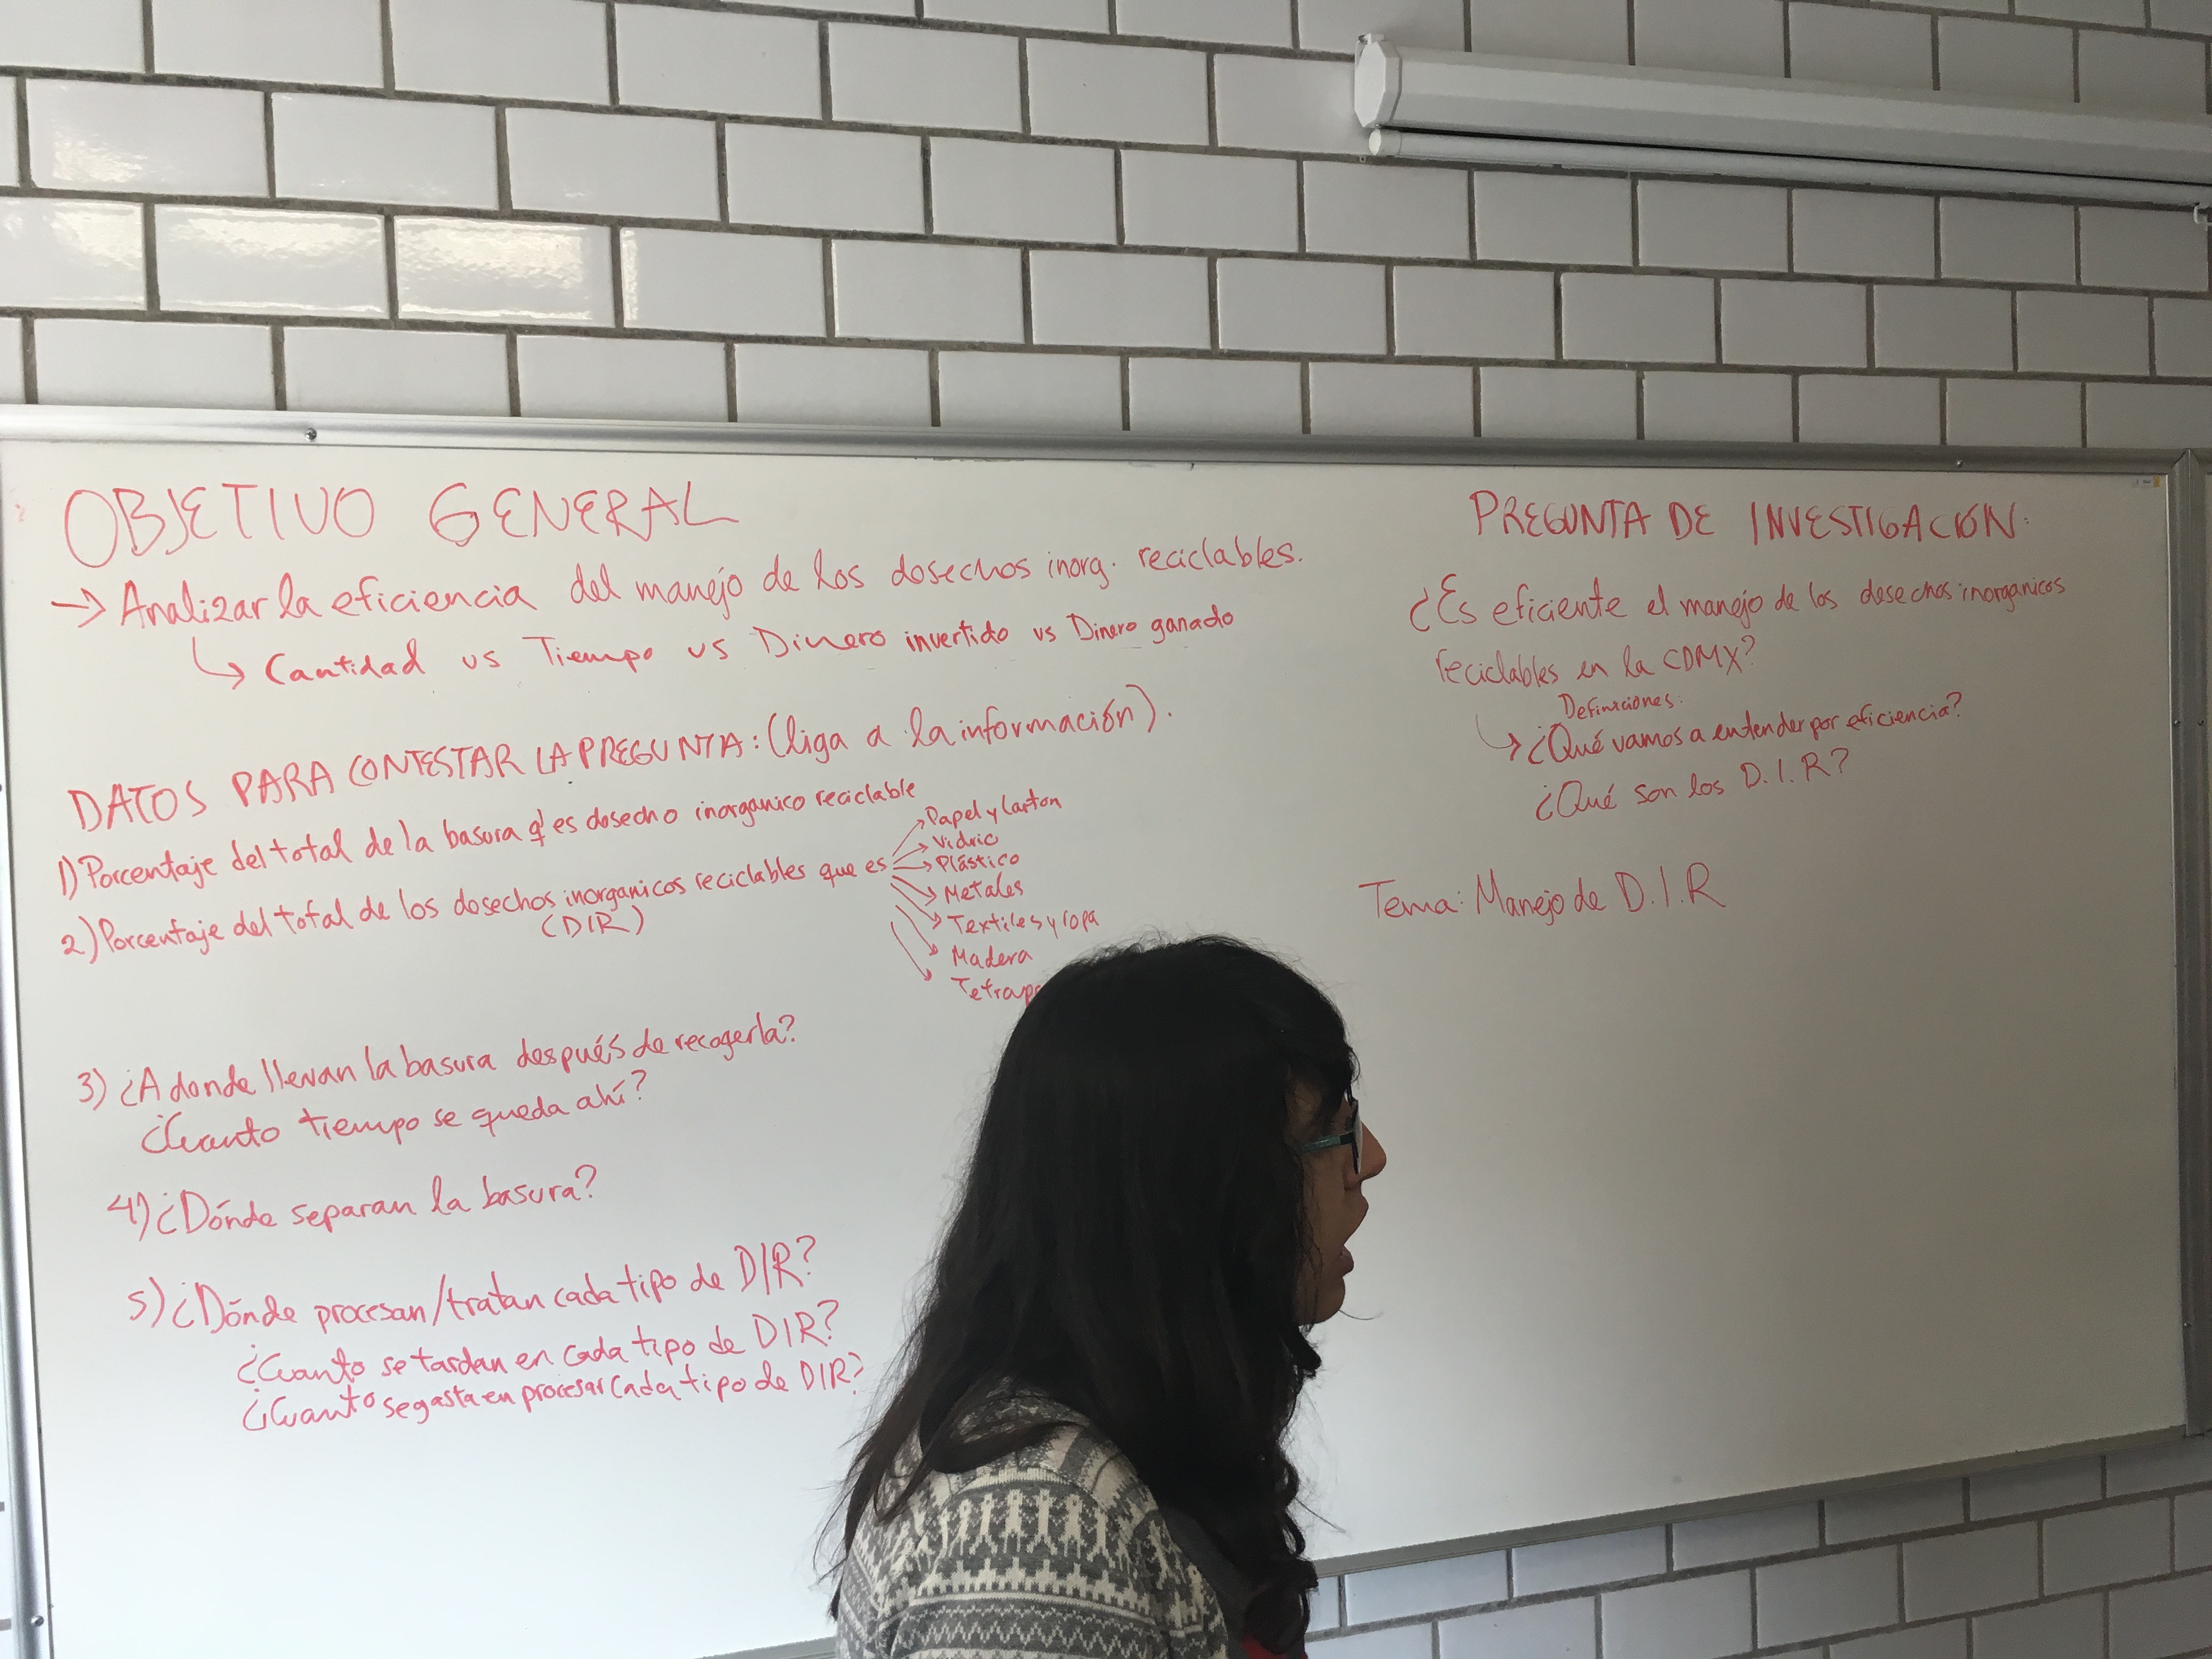 OBJETIVO GENERAL
→ Analizar la eficiencia del manejo de los dosechos inorg. reciclables.
↳ Cantidad vs Tiempo vs Dinero invertido vs Dinero ganado
DATOS PARA CONTESTAR LA PREGUNTA: (liga a la información).
1) Porcentaje del total de la basura q' es dosecho inorganico reciclable
2) Porcentaje del total de los dosechos inorganicos reciclables que es
(DIR)
→ Papel y Carton
→ Vidrio
→ Plástico
→ Metales
→ Textiles y ropa
→ Madera
3) ¿A donde llevan la basura después de recogerla?
¿Cuanto tiempo se queda ahí?
4) ¿Dónde separan la basura?
5) ¿Dónde procesan/tratan cada tipo de DIR?
¿Cuanto se tardan en cada tipo de DIR?
¿Cuanto se gasta en procesar cada tipo de DIR?
PREGUNTA DE INVESTIGACIÓN:
¿Es eficiente el manejo de los desechos inorganicos
reciclables en la CDMX?
Definiciones:
↳ ¿Qué vamos a entender por eficiencia?
¿Qué son los D.I.R?
Tema: Manejo de D.I.R